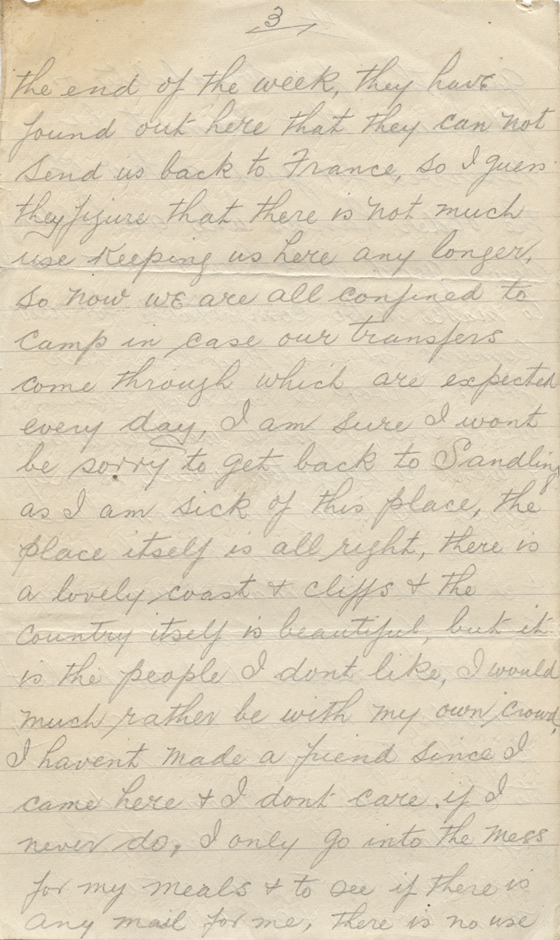 3
the end of the week, they have
found out here that they can not
send us back to France, so I guess
they figure that there is not much
use keeping us here any longer,
so now we are all confined to
camp in case our transfers
come through which are expected
every day, I am sure I wont
be sorry to get back to Sandling
as I am sick of this place, the
place itself is all right, there is
a lovely coast & cliffs & the
country itself is beautiful, but it
is the people I dont like, I would
much rather be with my own crowd,
I havent made a friend since I
came here & I dont care if I
never do, I only go into the mess
for my meals & to see if there is
any mail for me, there is no use